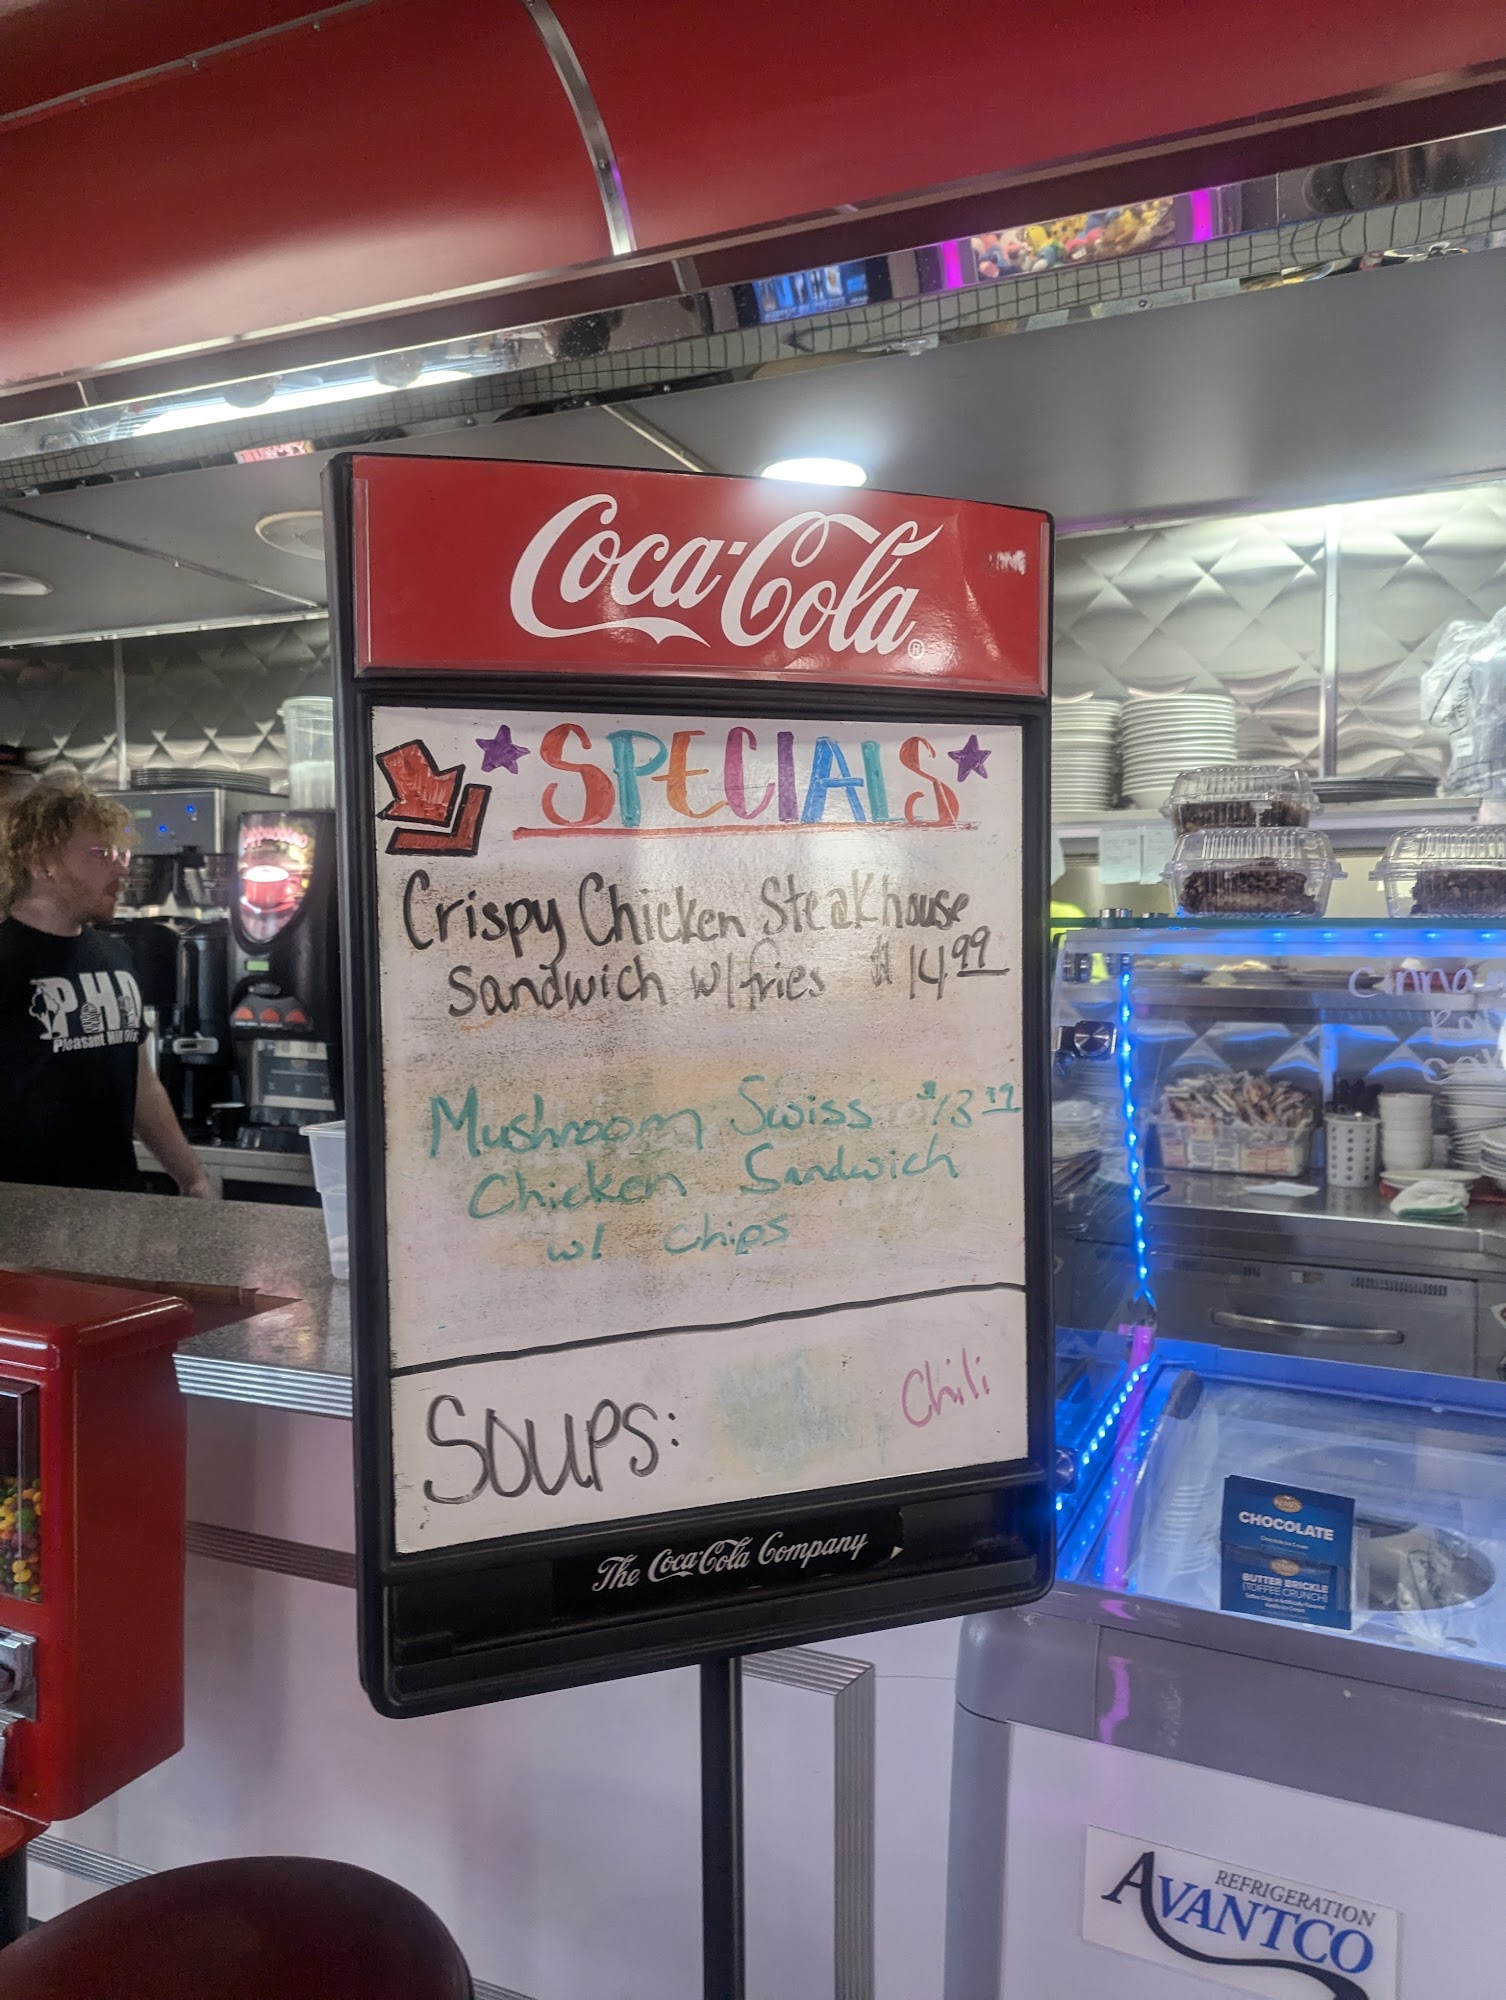 Coca-Cola
SPECIALS
Crispy Chicken Steakhouse
Sandwich w/fries $14.99
Mushroom Swiss
Chicken Sandwich
w/ chips
SOUPS:
Chili
The Coca-Cola Company
PHD
Pleasant
CHOCOLATE
BUTTER BRICKLE
(TOFFEE CRUNCH)
REFRIGERATION
AVANTCO